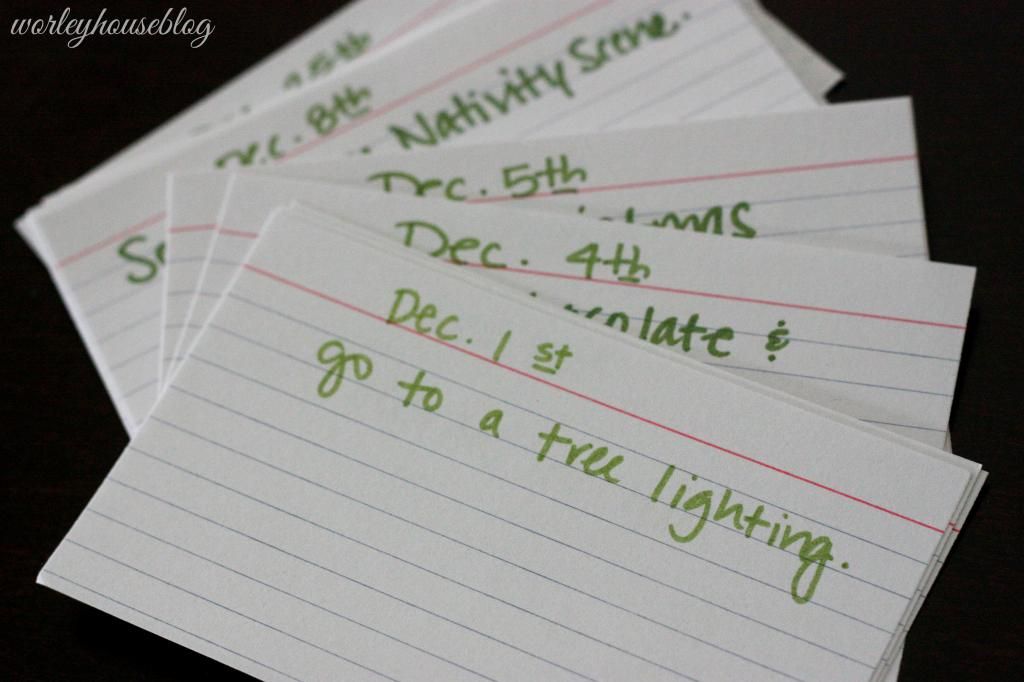 worleyhouseblog
Dec. 8th
Nativity Scene.
Dec. 5th
Dec. 4th
&
Dec. 1st
go to a tree lighting.